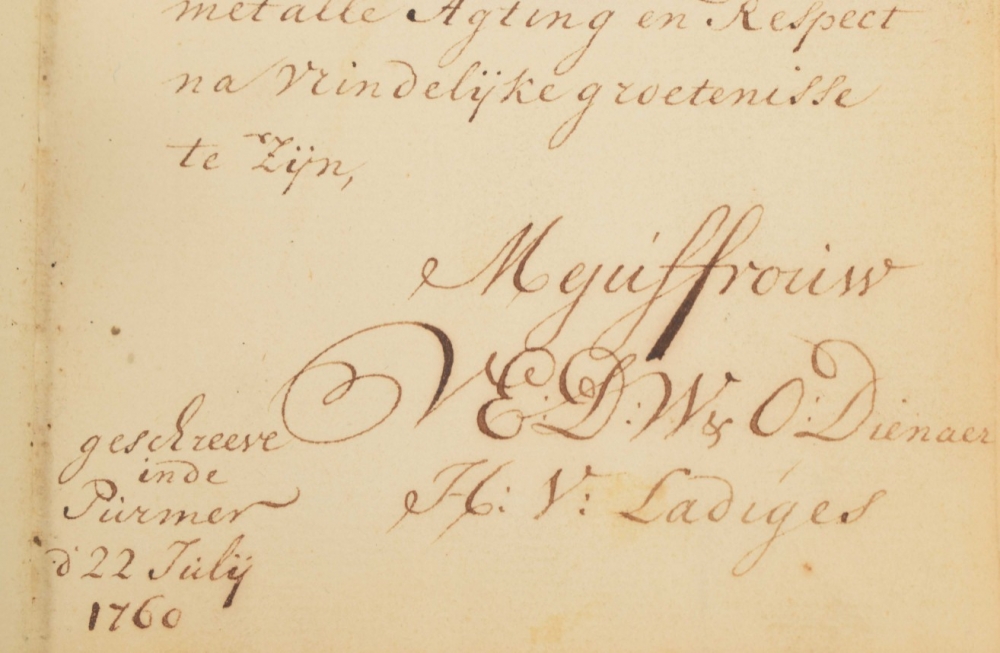 met alle Agting en Respect
na vrindelijke groetenisse
te Zijn,
Mejuffrouw
V E: D: W& O: Dienaer
H: V: Ladiges
geschreeve
in de
Purmer
d' 22 Julij
1760